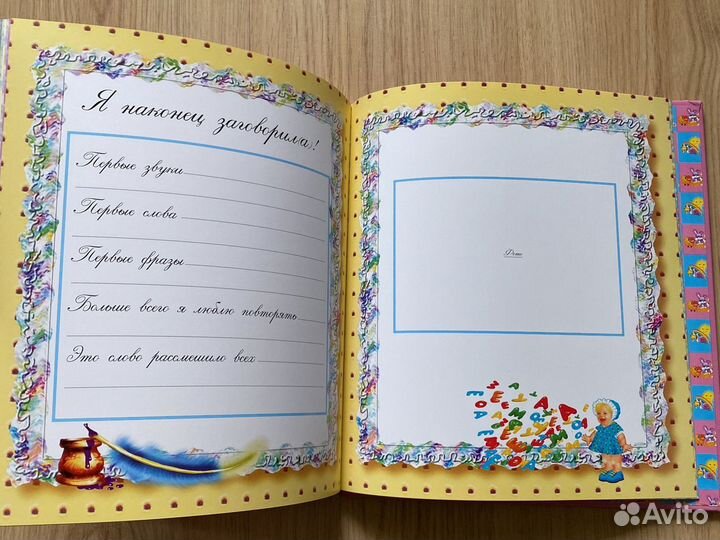 Я наконец заговорил(а)!
Первые звуки
Первые слова
Первые фразы
Больше всего я люблю повторять
Это слово рассмешило всех
Фото
Avito